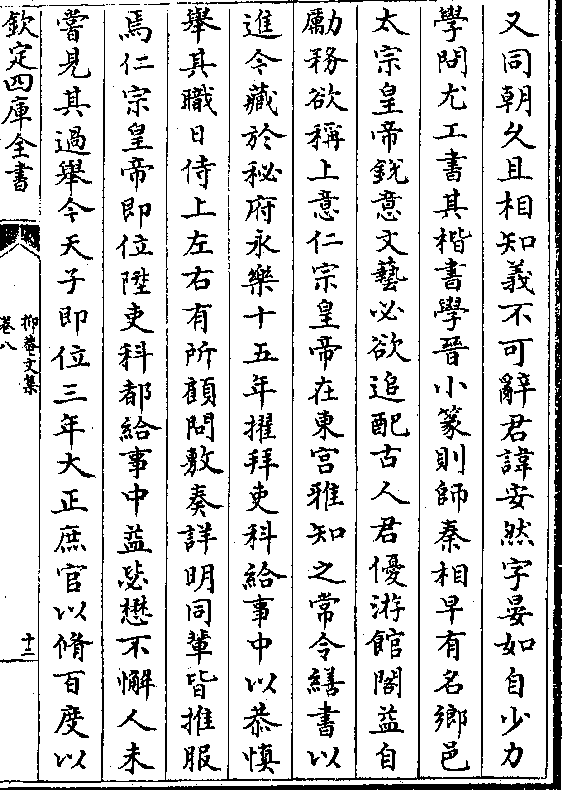 又同朝久且相知義不可辭君諱安然字晏如自少力
學問尤工書其楷書學晉小篆則師秦相早有名鄉邑
太宗皇帝銳意文藝必欲追配古人君優游館閣益自
勵務欲稱上意仁宗皇帝在東宮雅知之常令繕書以
進今藏於秘府永樂十五年擢拜吏科給事中以恭慎
舉其職日侍上左右有所顧問敷奏詳明同輩皆推服
焉仁宗皇帝即位陞吏科都給事中益毖懋不懈人未
嘗見其過舉今天子即位三年大正庶官以脩百度以
欽定四庫全書
抑菴文集
卷八
十二